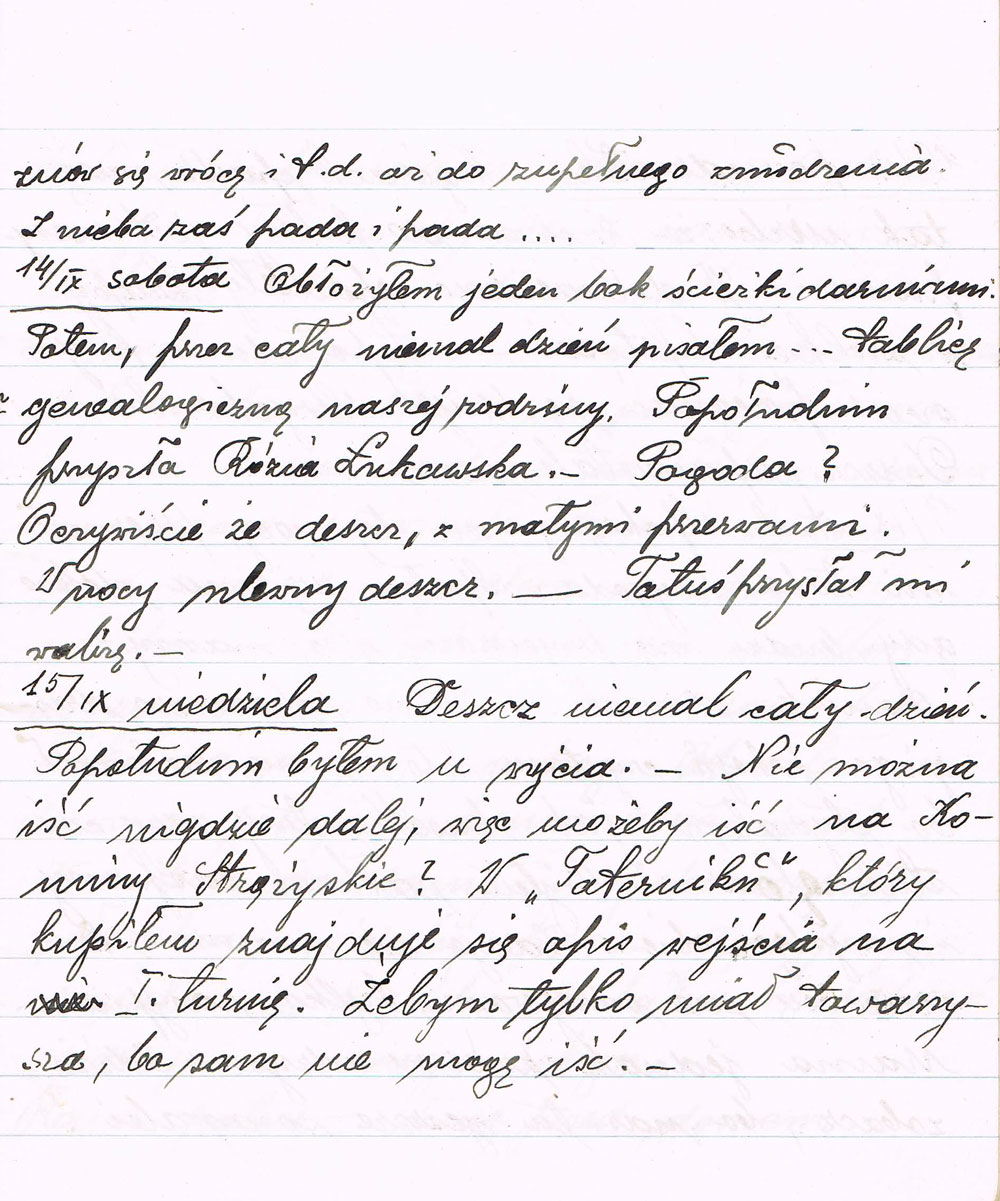 znów się wrócę i t.d. aż do zupełnego znudzenia.
Z nieba zaś pada i pada ....
14/IX sobota Obłożyłem jeden bok ścieżki darniami.
Potem, przez cały niemal dzień pisałem ... tablicę
genealogiczną naszej rodziny. Popołudniu
przyszła Rózia Łukawska. — Pogoda ?
Oczywiście że deszcz, z małymi przerwami.
W nocy ulewny deszcz. — Tatuś przysłał mi
walizę. —
15/IX niedziela Deszcz niemal cały dzień.
Popołudniu byłem u wujcia. — Nie można
iść nigdzie dalej, więc możeby iść na Ko-
miny Strążyskie ? W „Taterniku", który
kupiłem znajduje się opis wejścia na
I. turnię. Żebym tylko miał towarzy-
sza, bo sam nie mogę iść. —